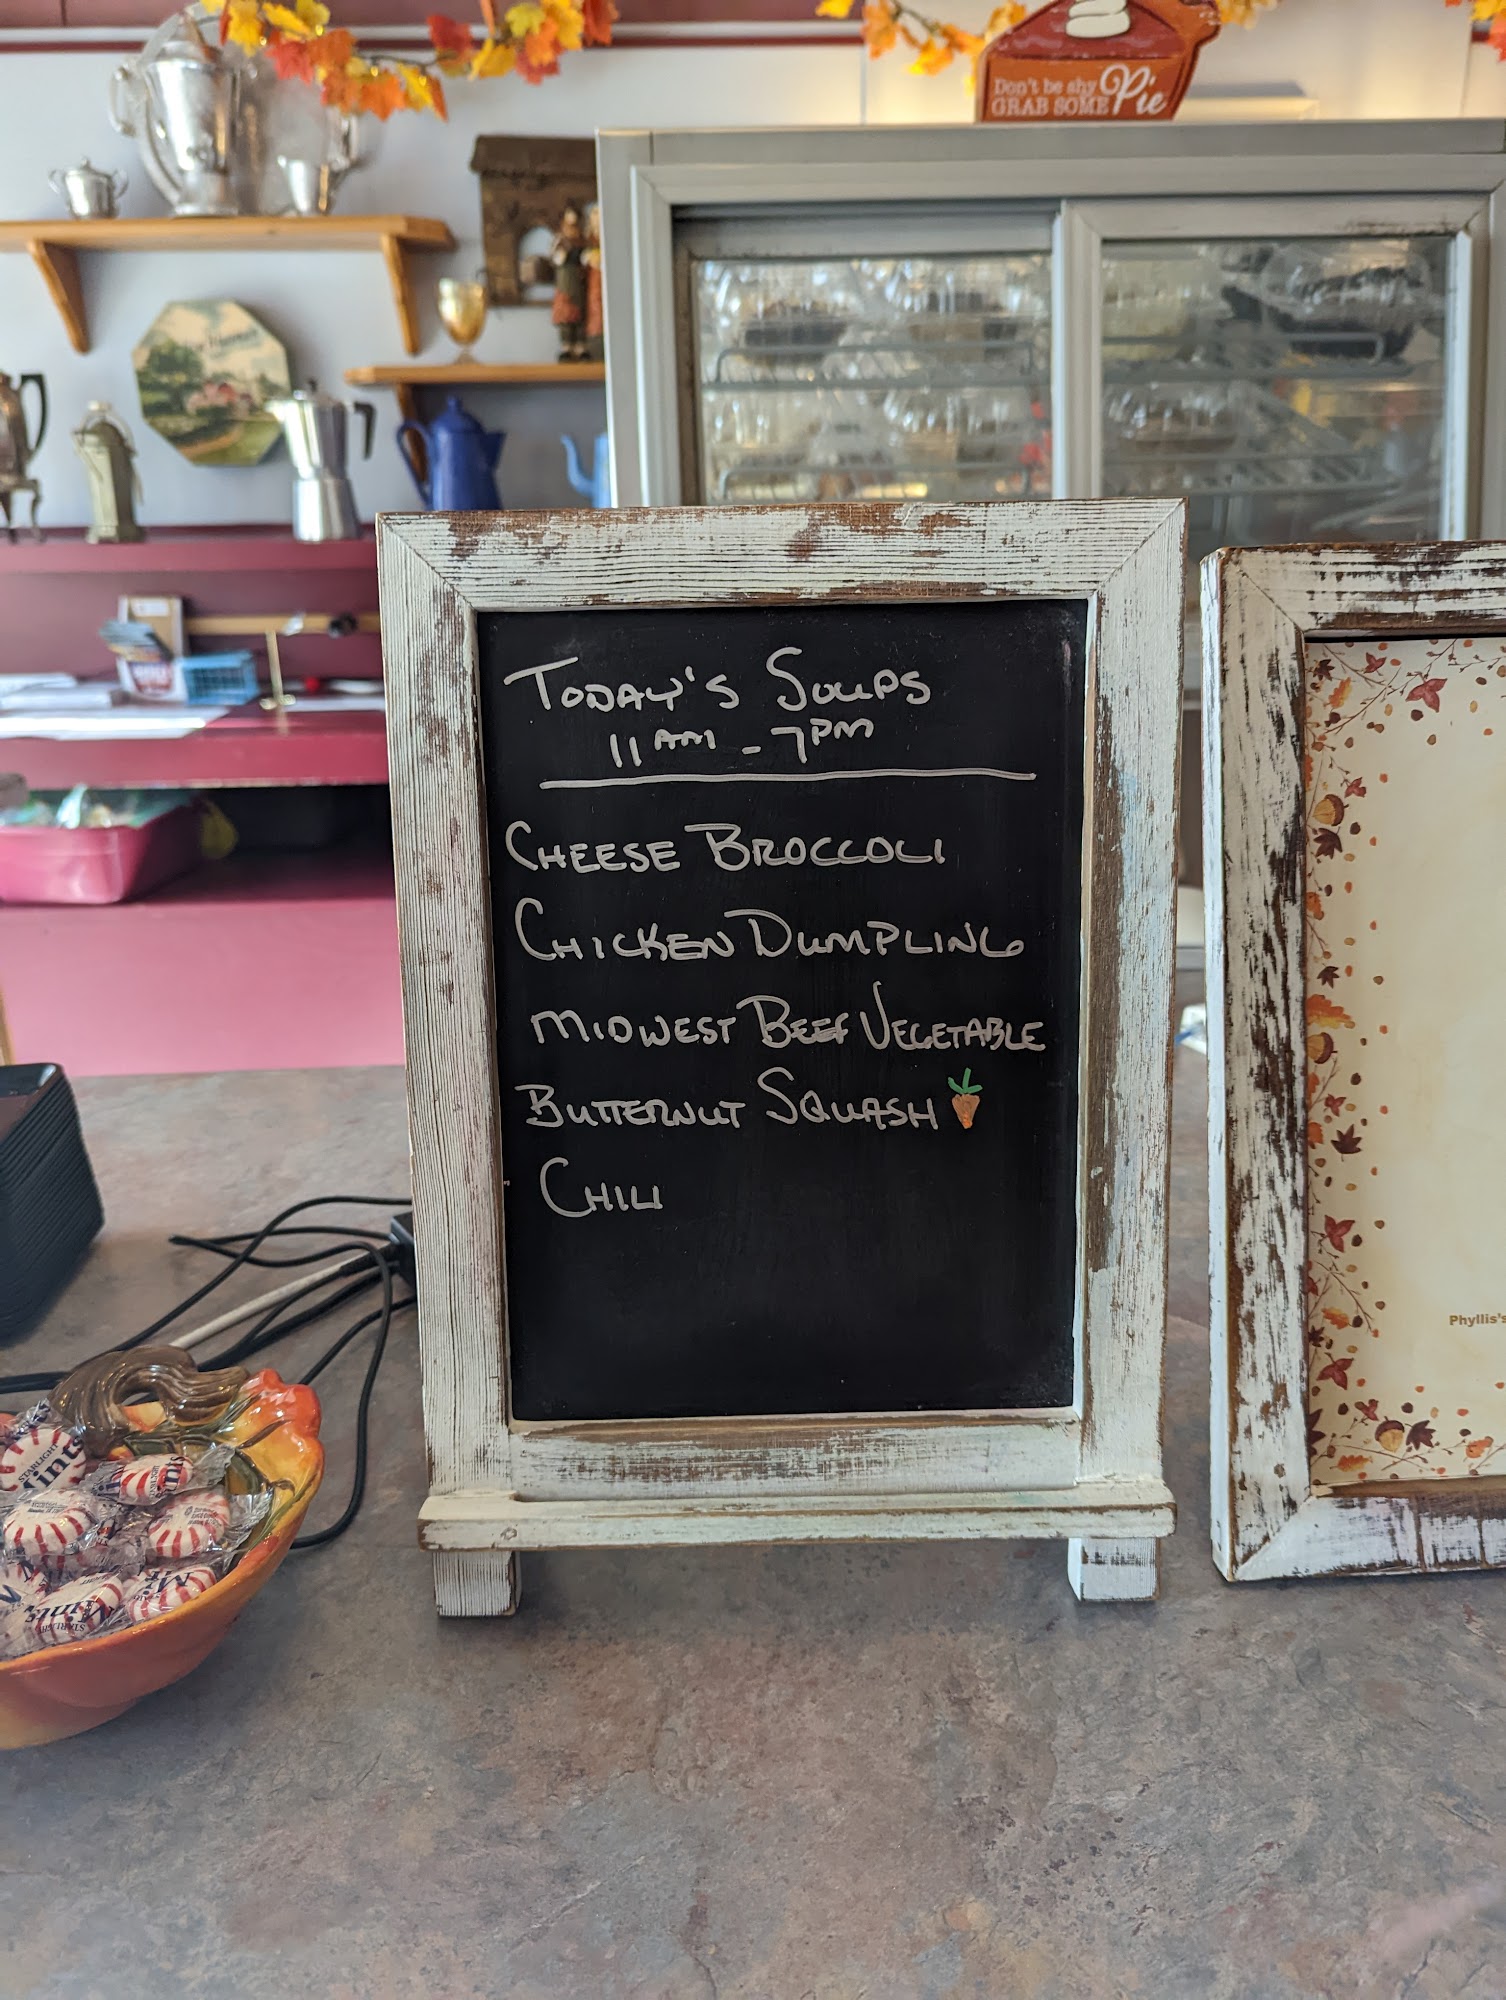 Don't be shy
GRAB SOME Pie
TODAY'S SOUPS
11AM - 7PM
CHEESE BROCCOLI
CHICKEN DUMPLING
MIDWEST BEEF VEGETABLE
BUTTERNUT SQUASH
CHILI
Phyllis's
STARLIGHT
Mints